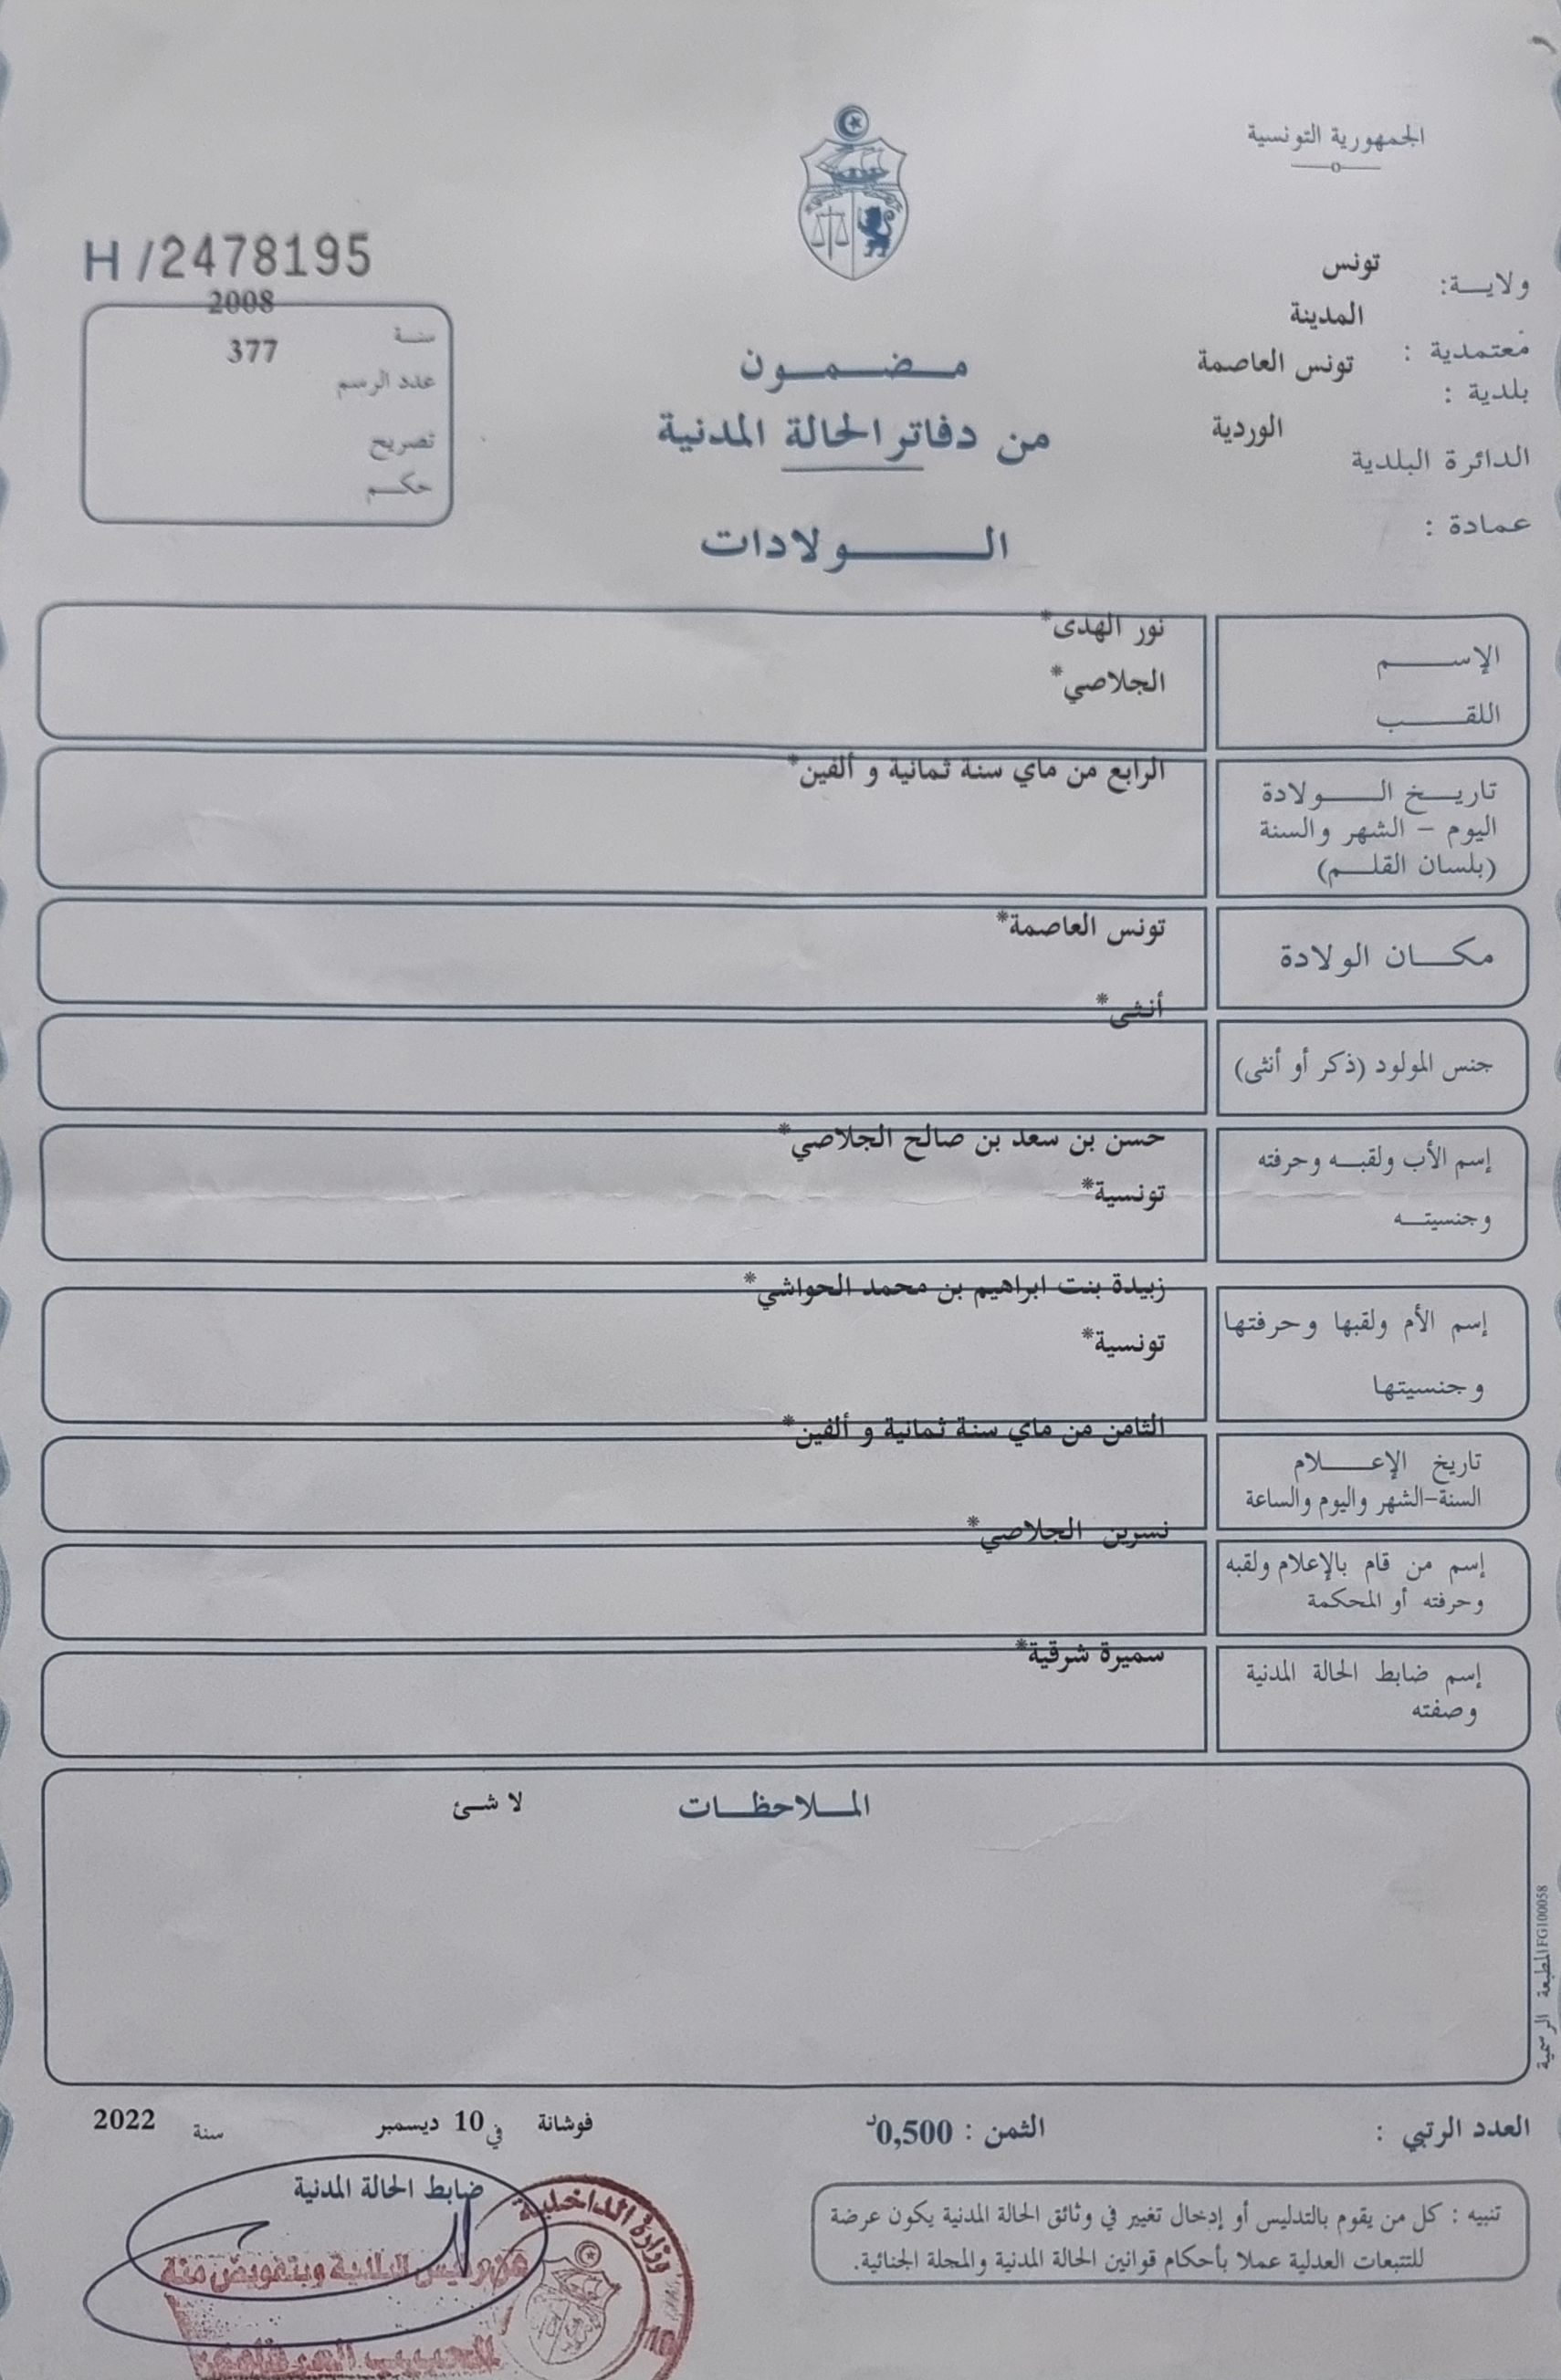 الجمهورية التونسية
ولايـــة: تونس
معتمدية : المدينة
بلدية : تونس العاصمة
الدائرة البلدية الوردية
عمادة :
H /2478195
سنـة 2008
عدد الرسم 377
تصريح
حكــم
مــضــمــون
من دفاتر الحالة المدنية
الـــــولادات
الإســـــم نور الهدى*
اللقـــــب الجلاصي*
تاريــخ الــــولادة الرابع من ماي سنة ثمانية و ألفين*
اليوم – الشهر والسنة
(بلسان القلــم)
مكـــان الولادة تونس العاصمة*
جنس المولود (ذكر أو أنثى) أنثى*
إسم الأب ولقبــه وحرفته حسن بن سعد بن صالح الجلاصي*
وجنسيتــه تونسية*
إسم الأم ولقبها وحرفتها زبيدة بنت ابراهيم بن محمد الحواشي*
وجنسيتها تونسية*
تاريخ الإعــــلام الثامن من ماي سنة ثمانية و ألفين*
السنة-الشهر واليوم والساعة
إسم من قام بالإعلام ولقبه نسرين الجلاصي*
وحرفته أو المحكمة
إسم ضابط الحالة المدنية سميرة شرقية*
وصفته
الملاحظــات لا شئ
المطبعة الرسمية FG100058
العدد الرتبي :
الثمن : 0,500د
فوشانة في 10 ديسمبر سنة 2022
ضابط الحالة المدنية
تنبيه : كل من يقوم بالتدليس أو إدخال تغيير في وثائق الحالة المدنية يكون عرضة
للتتبعات العدلية عملا بأحكام قوانين الحالة المدنية والمجلة الجنائية.
وزارة الداخلية
عن رئيس البلدية وبتفويض منه
الحبيب